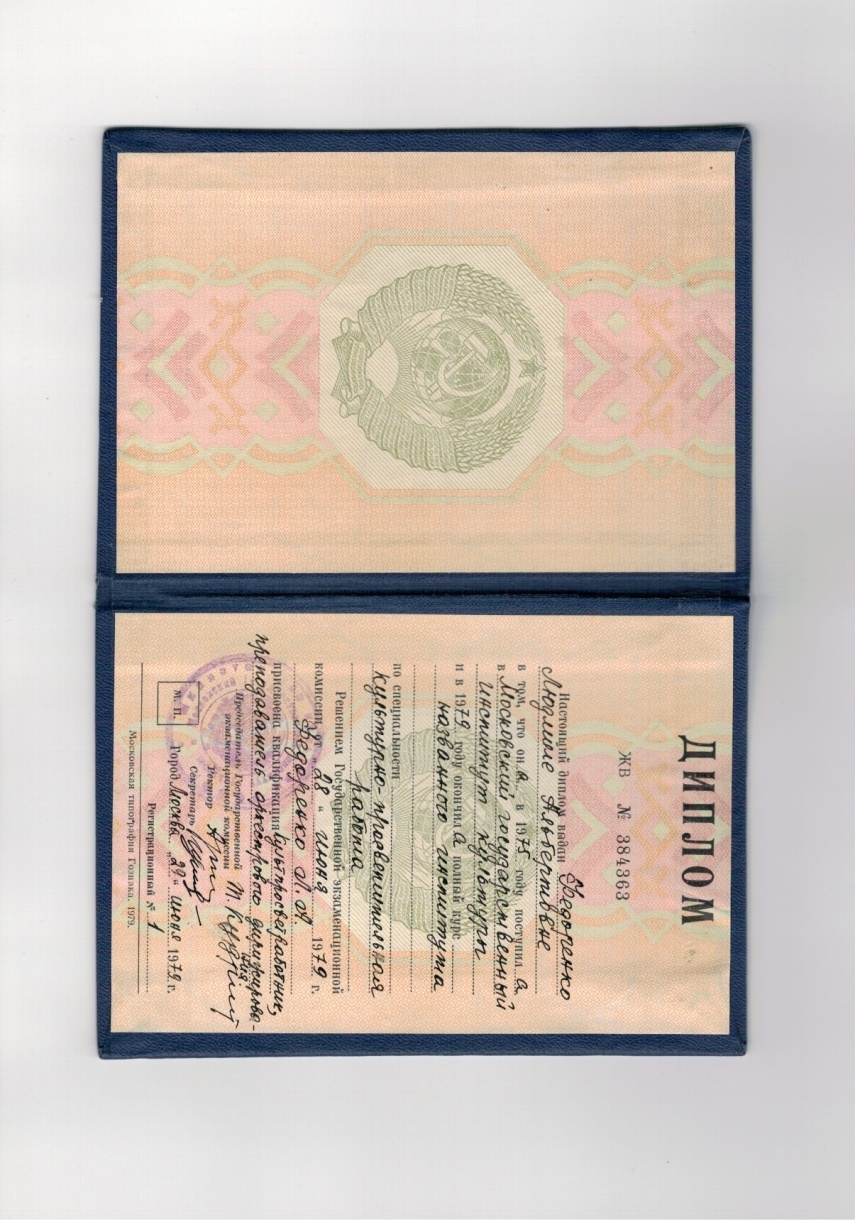 ДИПЛОМ
ЖВ № 384363
Настоящий диплом выдан Федоренко
Людмиле Альбертовне
в том, что он а в 1975 году поступил а
в Московский государственный
институт культуры
и в 1979 году окончил а полный курс
названного института
по специальности
культурно-просветительная
работа
Решением Государственной экзаменационной
комиссии от „28“ июня 1979 г.
Федоренко Л. А.
присвоена квалификация культпросветработник,
преподаватель оркестрового дирижирова-
ния
Председатель Государственной
экзаменационной комиссии
Ректор
Секретарь
М. П.
Город Москва „29“ июня 1979 г.
Регистрационный № 1
Московская типография Гознака. 1979.